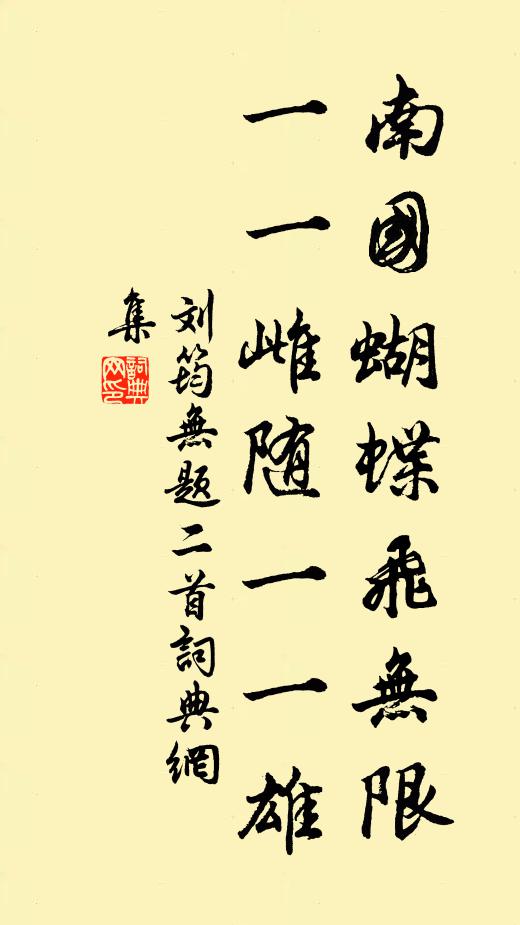 南國蝴蝶飛無限
一一雌随一一雄
刘筠無题二首詞典網
集
詞典
网印